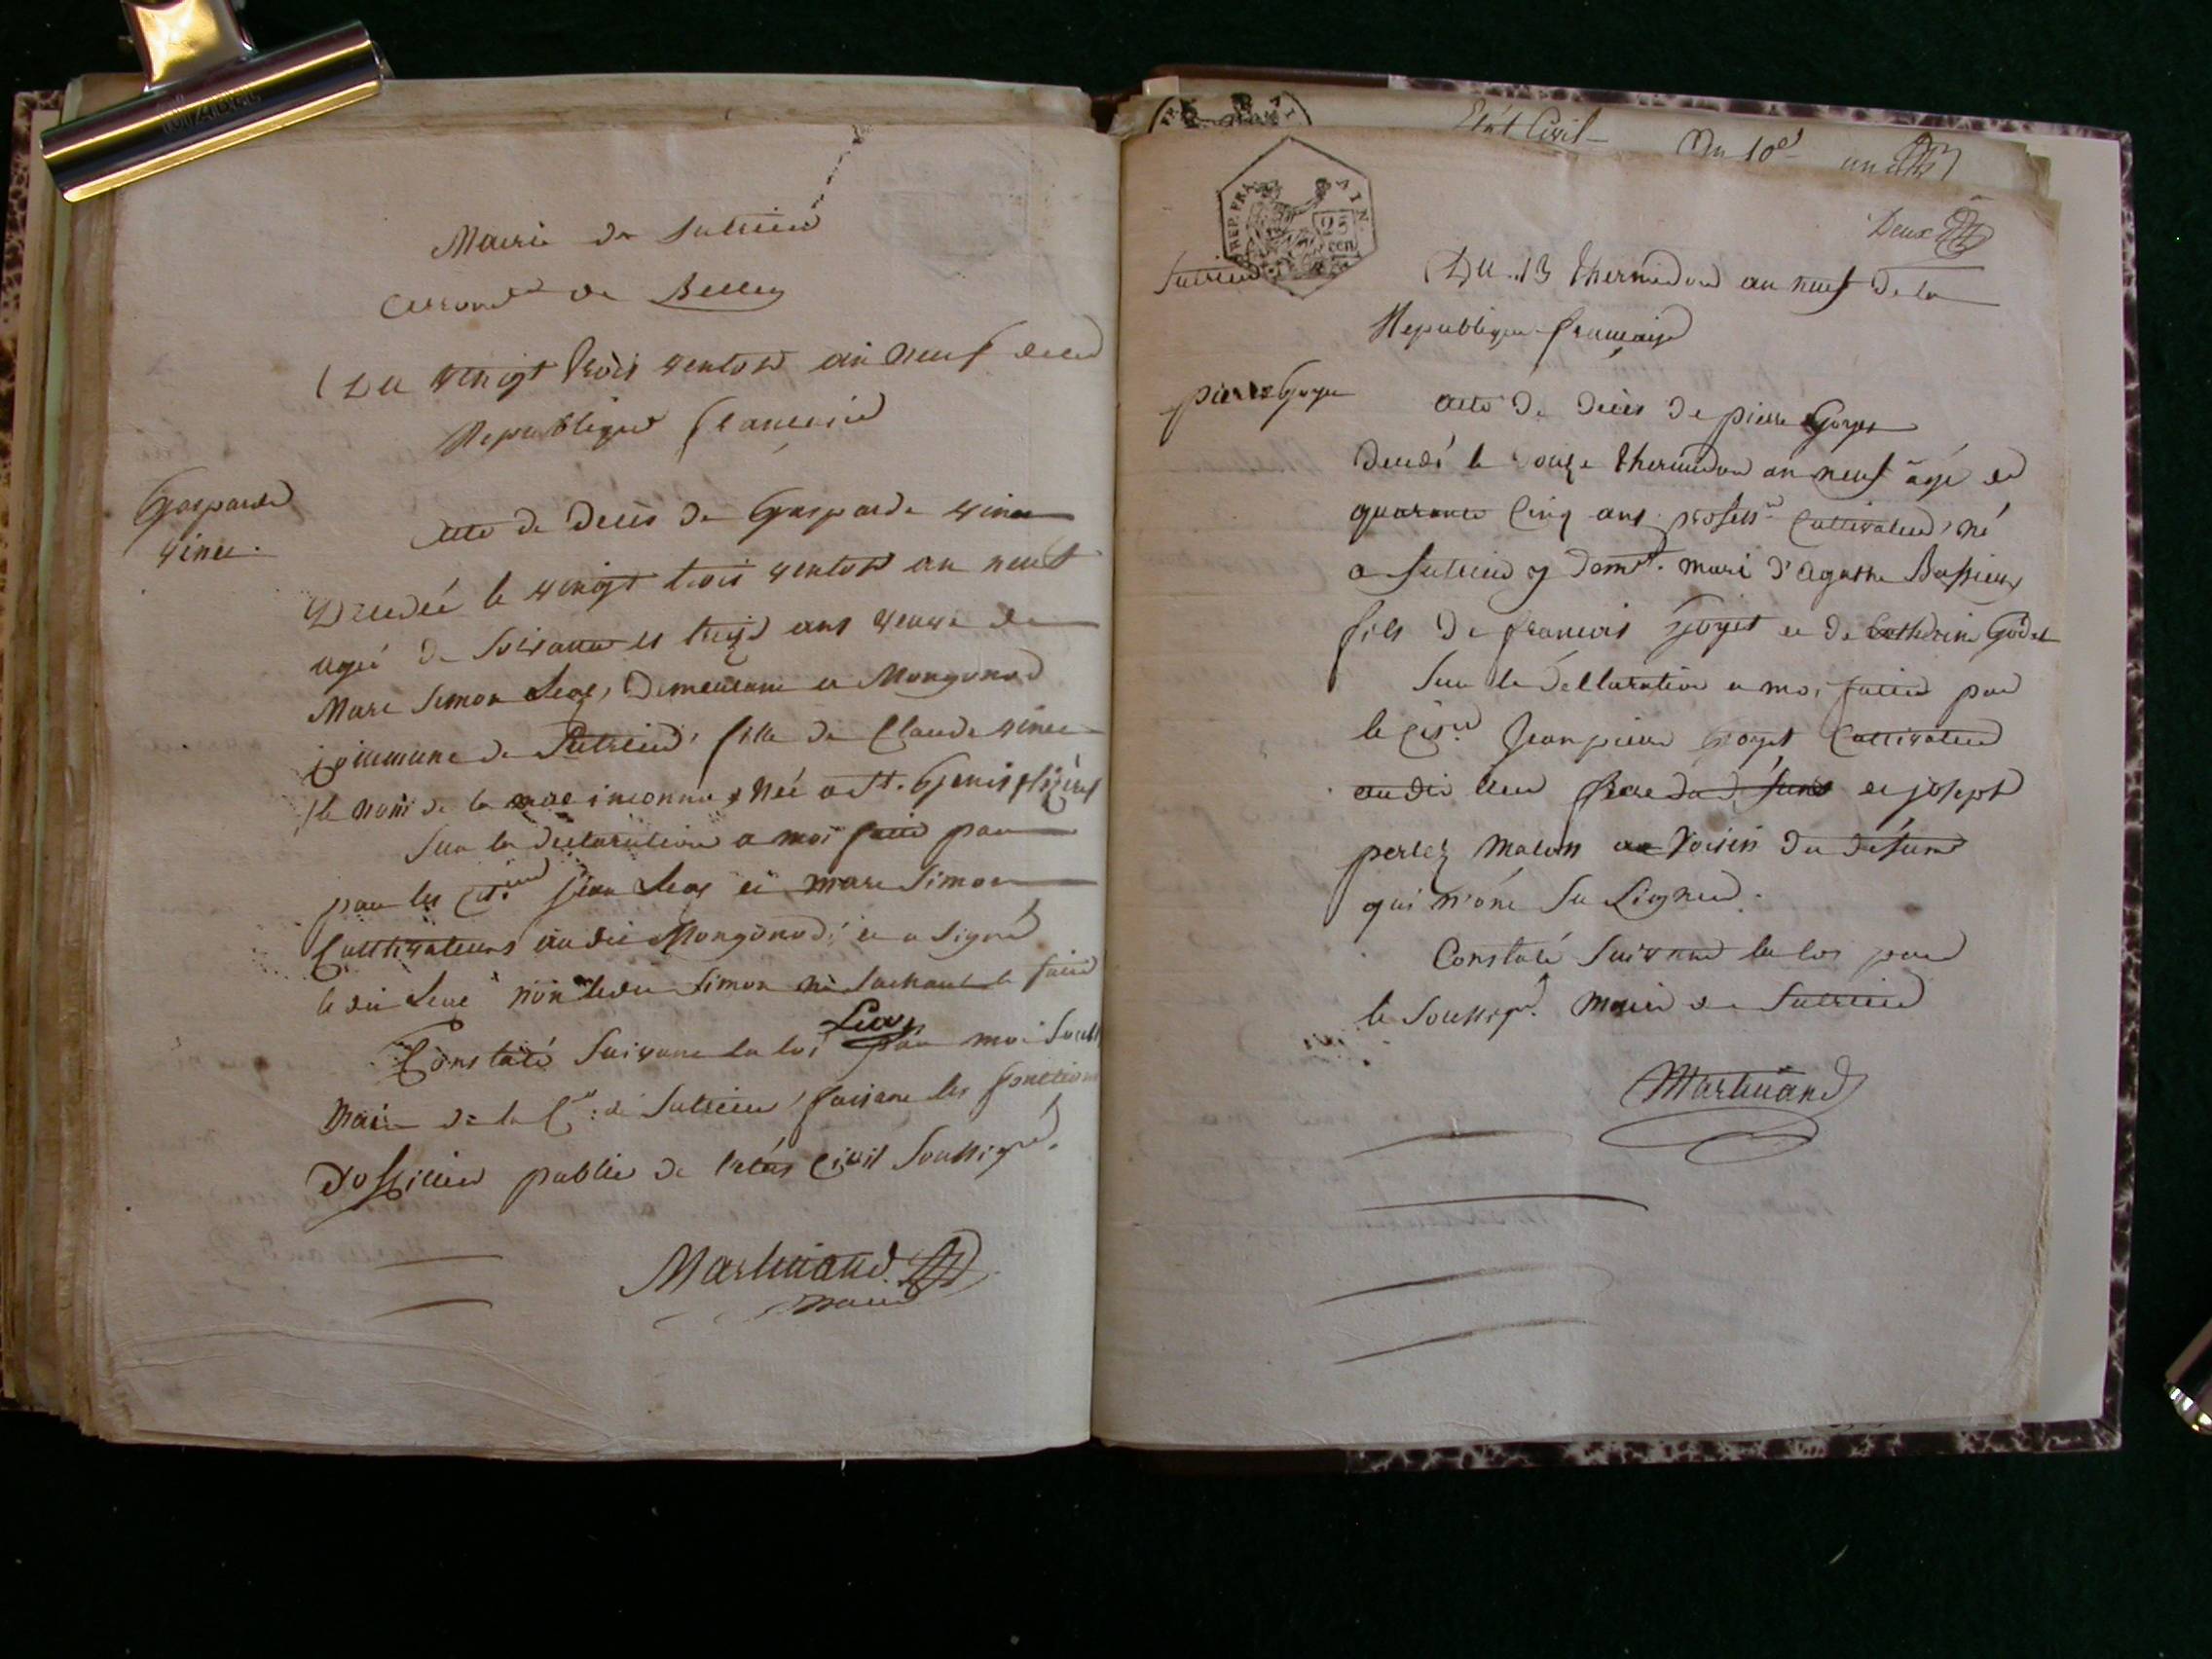 Mairie de Sutrieu
arrond.t de Belley
Du vingt trois ventose an neuf de la
Republique francaise
Gasparde
vinec.
acte de decès de Gasparde vinec
Decedée le vingt trois ventose an neuf
agée de soixante et treize ans veuve de
Marc Simon demeurant a Mongonod
Commune de Sutrieu, fille de Claude vinec
le nom de la mere inconnu, née a St. Genis
Sur la declaration a moi faite par
par les Cit. jean et marc Simon
Cultivateurs audit Mongonod, et a signé
le dit non ledit Simon ne sachant le faire
Constaté suivant la loi par moi souss
Maire de la C.ne de Sutrieu faisant les fonctions
d'officier public de l'etat Civil soussigné.
Martinand
maire
Etat Civil
REP. FRA
25
cen
Deux
Sutrieu
Du 13 thermidor an neuf de la
Republique francaise
pierre Goyet
acte de decès de pierre Goyet
decedé le douze thermidor an neuf agé de
quarante Cinq ans profess.n Cultivateur, né
a Sutrieu y dom.t. mari d'agathe Bassieux
fils de francois Goyet et de Catherine Godet
Sur la declaration a moi faite par
le Cit.n Jean pierre Goyet Cultivateur
audit lieu frere du defunt et joseph
perlez voisin du défunt
qui n'ont su signer.
Constaté suivant la loi par
le soussig.é maire de Sutrieu
Martinand